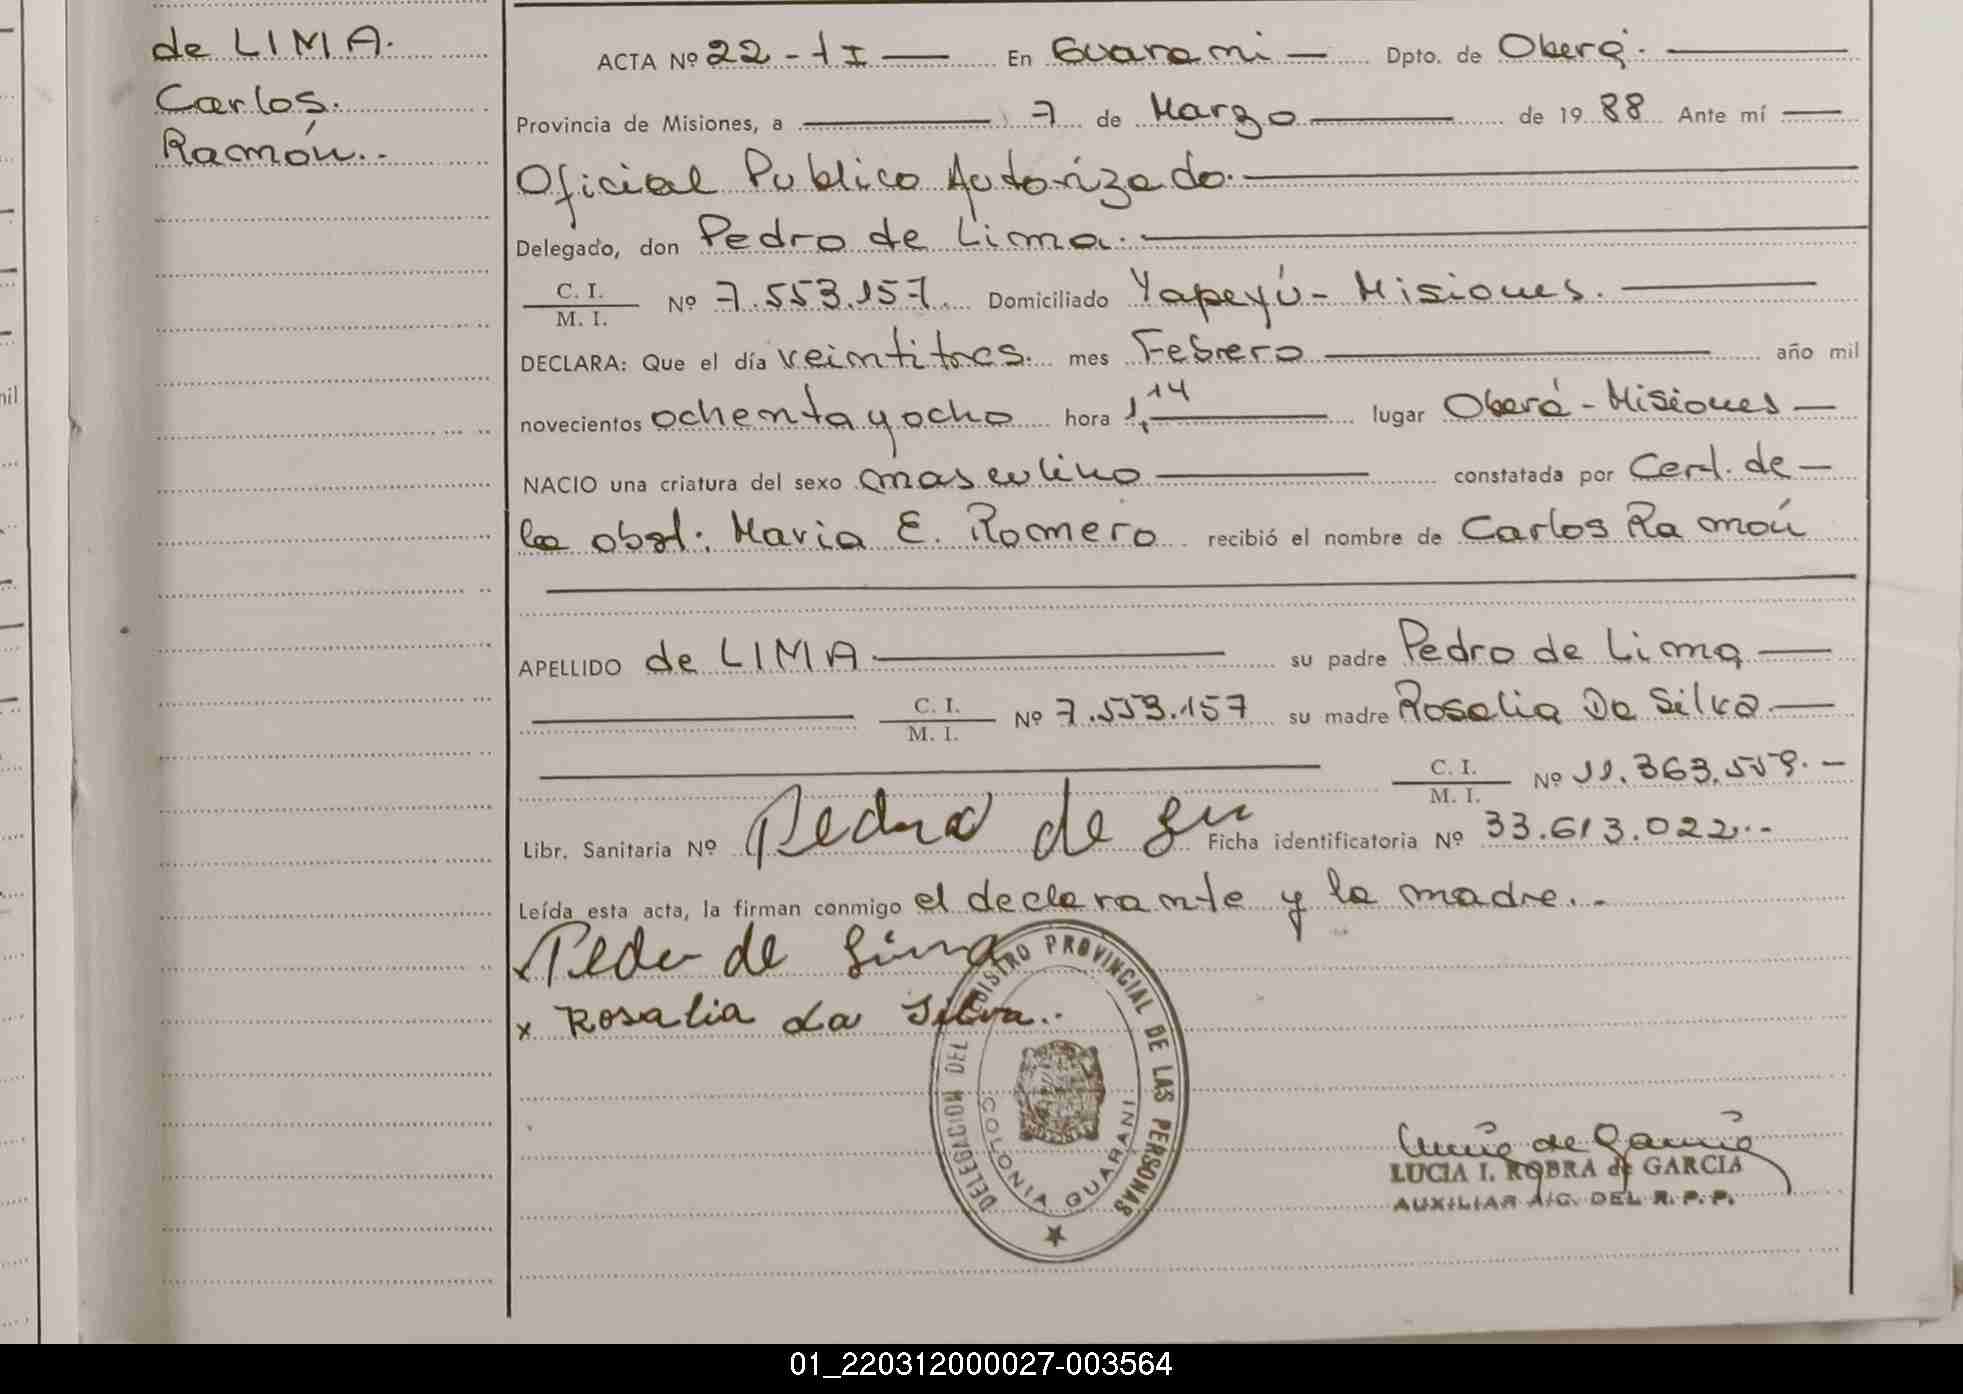 de LIMA.
Carlos.
Ramón.-
ACTA Nº 22 - 1 I — En Guarani — Dpto. de Oberá. —
Provincia de Misiones, a — 7 de Marzo — de 19 88 Ante mí —
Oficial Publico Autorizado. —
Delegado, don Pedro de Lima. —
C. I. / M. I. Nº 7.553.157. Domiciliado Yapeyú - Misiones. —
DECLARA: Que el día veintitres. mes Febrero — año mil
novecientos ochenta y ocho hora 1,14 — lugar Oberá - Misiones —
NACIO una criatura del sexo masculino — constatada por Cert. de —
la obst: Maria E. Romero recibió el nombre de Carlos Ramón
APELLIDO de LIMA — su padre Pedro de Lima —
C. I. / M. I. Nº 7.553.157 su madre Rosalia Da Silva —
C. I. / M. I. Nº 11.363.559. —
Libr. Sanitaria Nº Pedro de Ficha identificatoria Nº 33.613.022.-
Leída esta acta, la firman conmigo el declarante y la madre..-
x Pedro de Lima
x Rosalia da Silva..
DELEGACION DEL REGISTRO PROVINCIAL DE LAS PERSONAS
COLONIA GUARANI
LUCIA I. ROBRA de GARCIA
AUXILIAR A/C. DEL R. P. P.
01_220312000027-003564